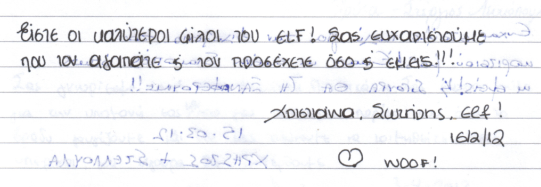 Είστε οι καλύτεροι φίλοι του ELF! Σας ευχαριστούμε
που τον αγαπάτε & τον προσέχετε όσο & εμείς!!!
Χριστιάνα, Σωτήρης, ELF!
16/2/12
♡ WOOF!